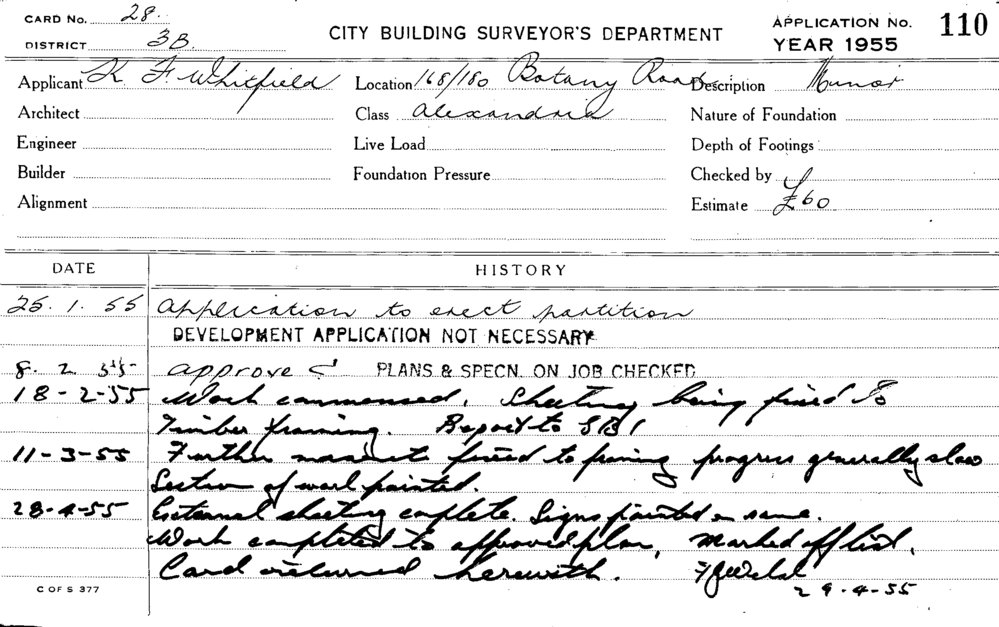 CARD No. 28.
DISTRICT 3B
CITY BUILDING SURVEYOR'S DEPARTMENT
APPLICATION No. 110
YEAR 1955
Applicant K F Whitfield Location 168/180 Botany Road Description Minor
Architect Class Alexandria Nature of Foundation
Engineer Live Load Depth of Footings
Builder Foundation Pressure Checked by
Alignment Estimate £60
DATE HISTORY
25.1.55 Application to erect partition
DEVELOPMENT APPLICATION NOT NECESSARY
8.2.55 approved PLANS & SPECN. ON JOB CHECKED
18-2-55 Work commenced. Sheeting being fixed to
Timber framing. Report to SBI
11-3-55 Further fixed to framing progress generally slow
Section of wall painted.
28-4-55 External sheeting complete. Signs painted on same.
Work completed to approved plan, Marked off list,
Card returned herewith.
29-4-55
C OF S 377